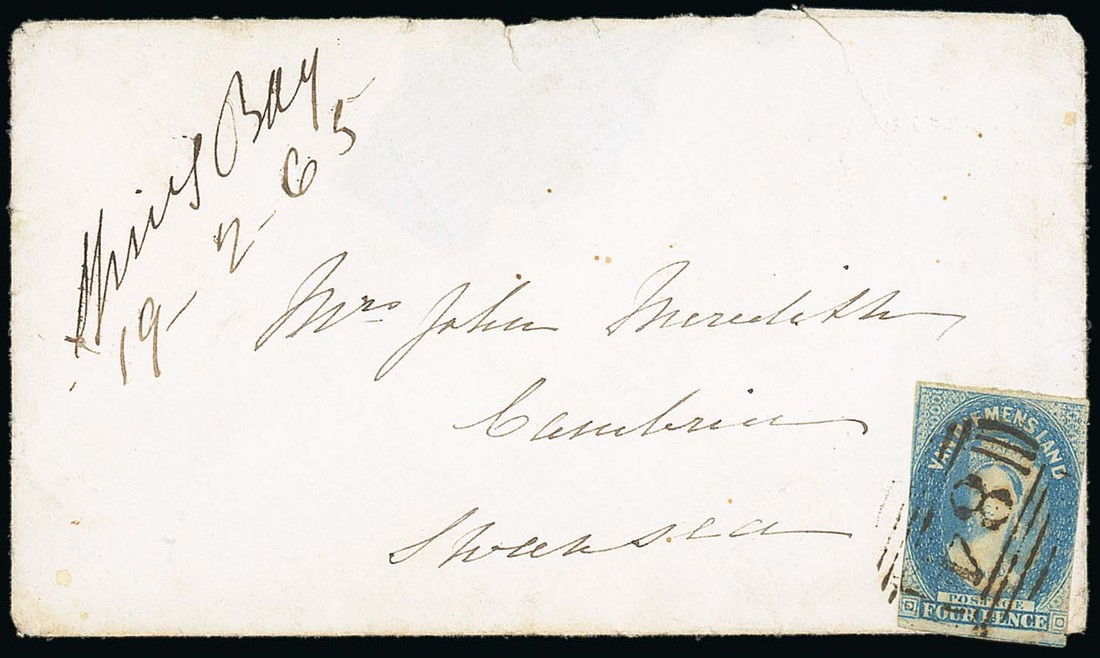 Spring Bay
19-2-65
Mrs John Meredith
Cambria
Swansea
VAN DIEMENS LAND
POSTAGE
FOUR PENCE